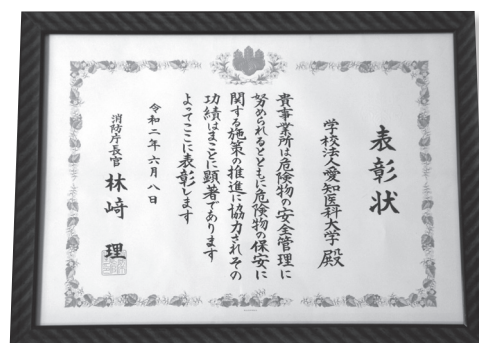 表彰状
学校法人愛知医科大学 殿
貴事業所は危険物の安全管理に
努められるとともに危険物の保安に
関する施策の推進に協力されその
功績はまことに顕著であります
よってここに表彰します
令和二年六月八日
消防庁長官 林﨑 理